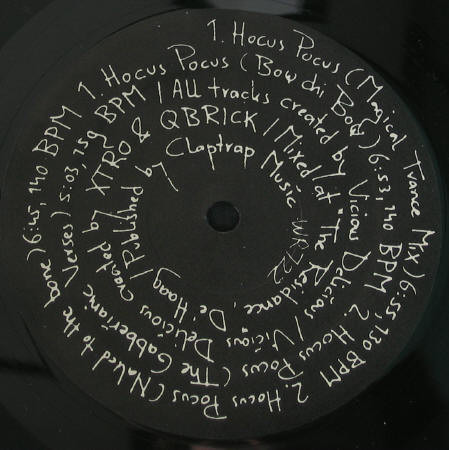 1. Hocus Pocus (Magical Trance Mix) 6:55 130 BPM 2. Hocus Pocus (Naked to the bone) 6:45, 140 BPM
1. Hocus Pocus (Bow chi Bow) 6:53, 140 BPM 2. Hocus Pocus (The Gabberianc Verses) 5:03 159 BPM
/ All tracks created by Vicious Delicious / Vicious Delicious created by XTRO & QBRICK
/ Mixed at "The Residance, De'Haag / Published by Claptrap Music
WR722